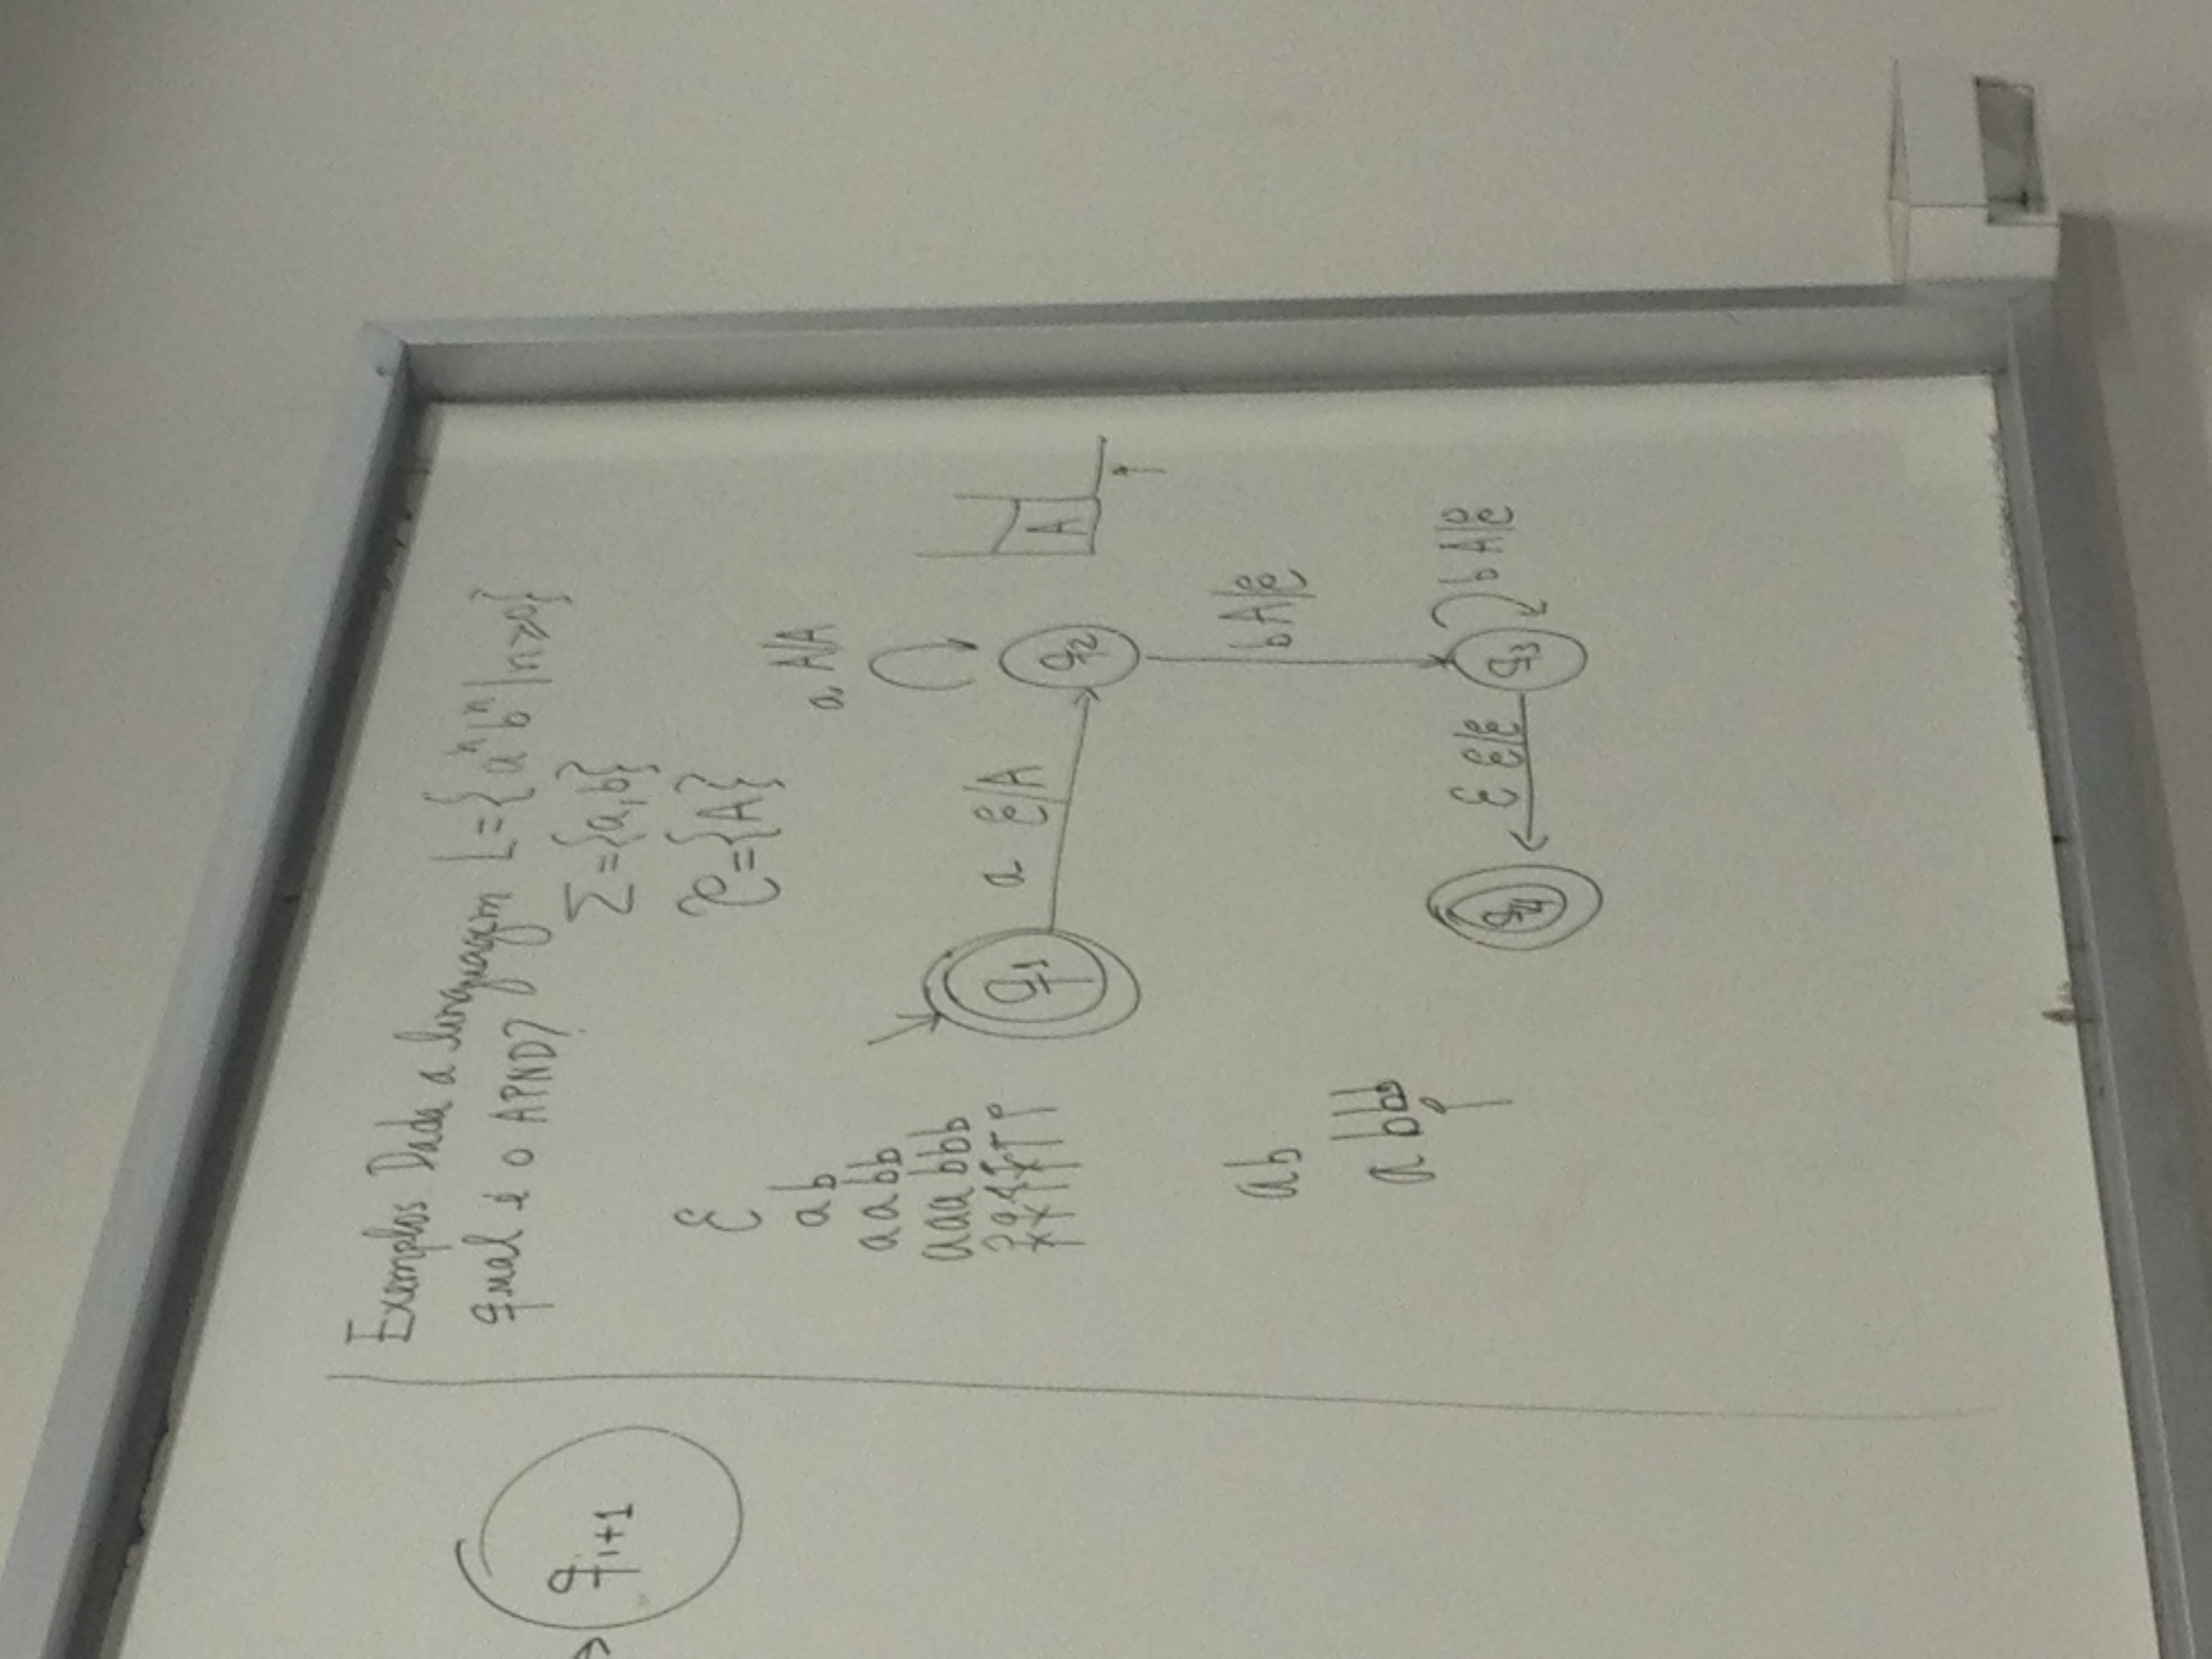 Exemplos Dada a linguagem L={aⁿbⁿ|n≥0}
qual é o APND?
Σ={a,b}
={A}
qi+1
ε
ab
aabb
aaabbb
a A/A
q1
a ε/A
q2
A
b A/ε
ab
abbb
q4
ε ε/ε
q3
b A/ε